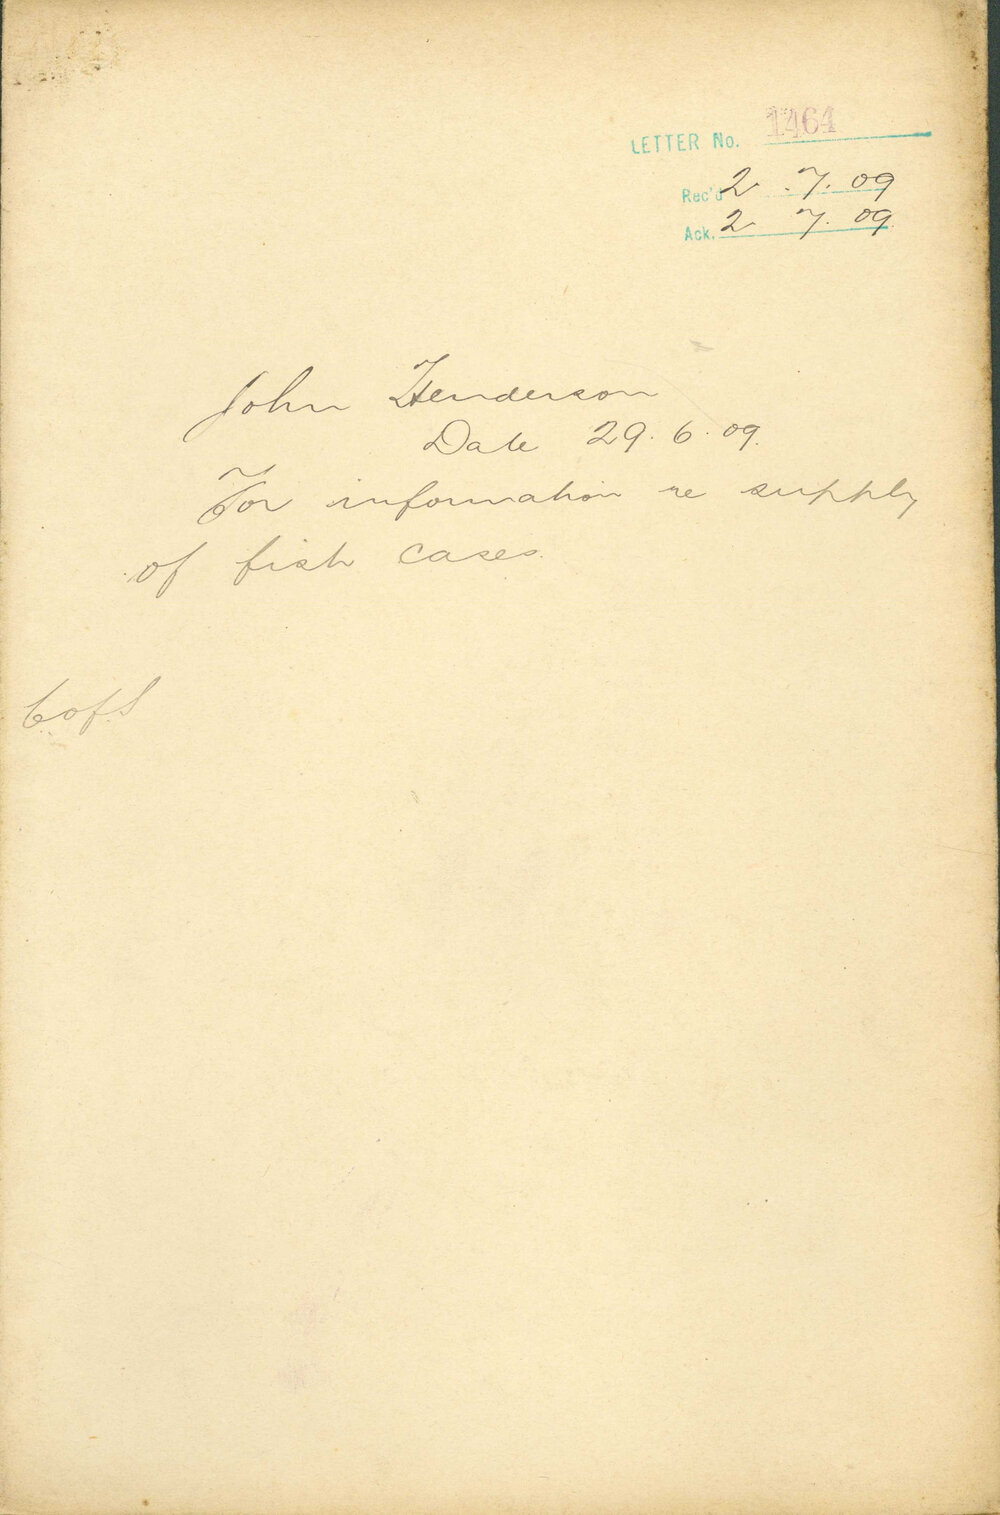 LETTER No. 1464
Rec'd 2. 7. 09
Ack. 2 7. 09.
John Henderson
Date 29. 6. 09.
For information re supply
of fish cases.
C of S